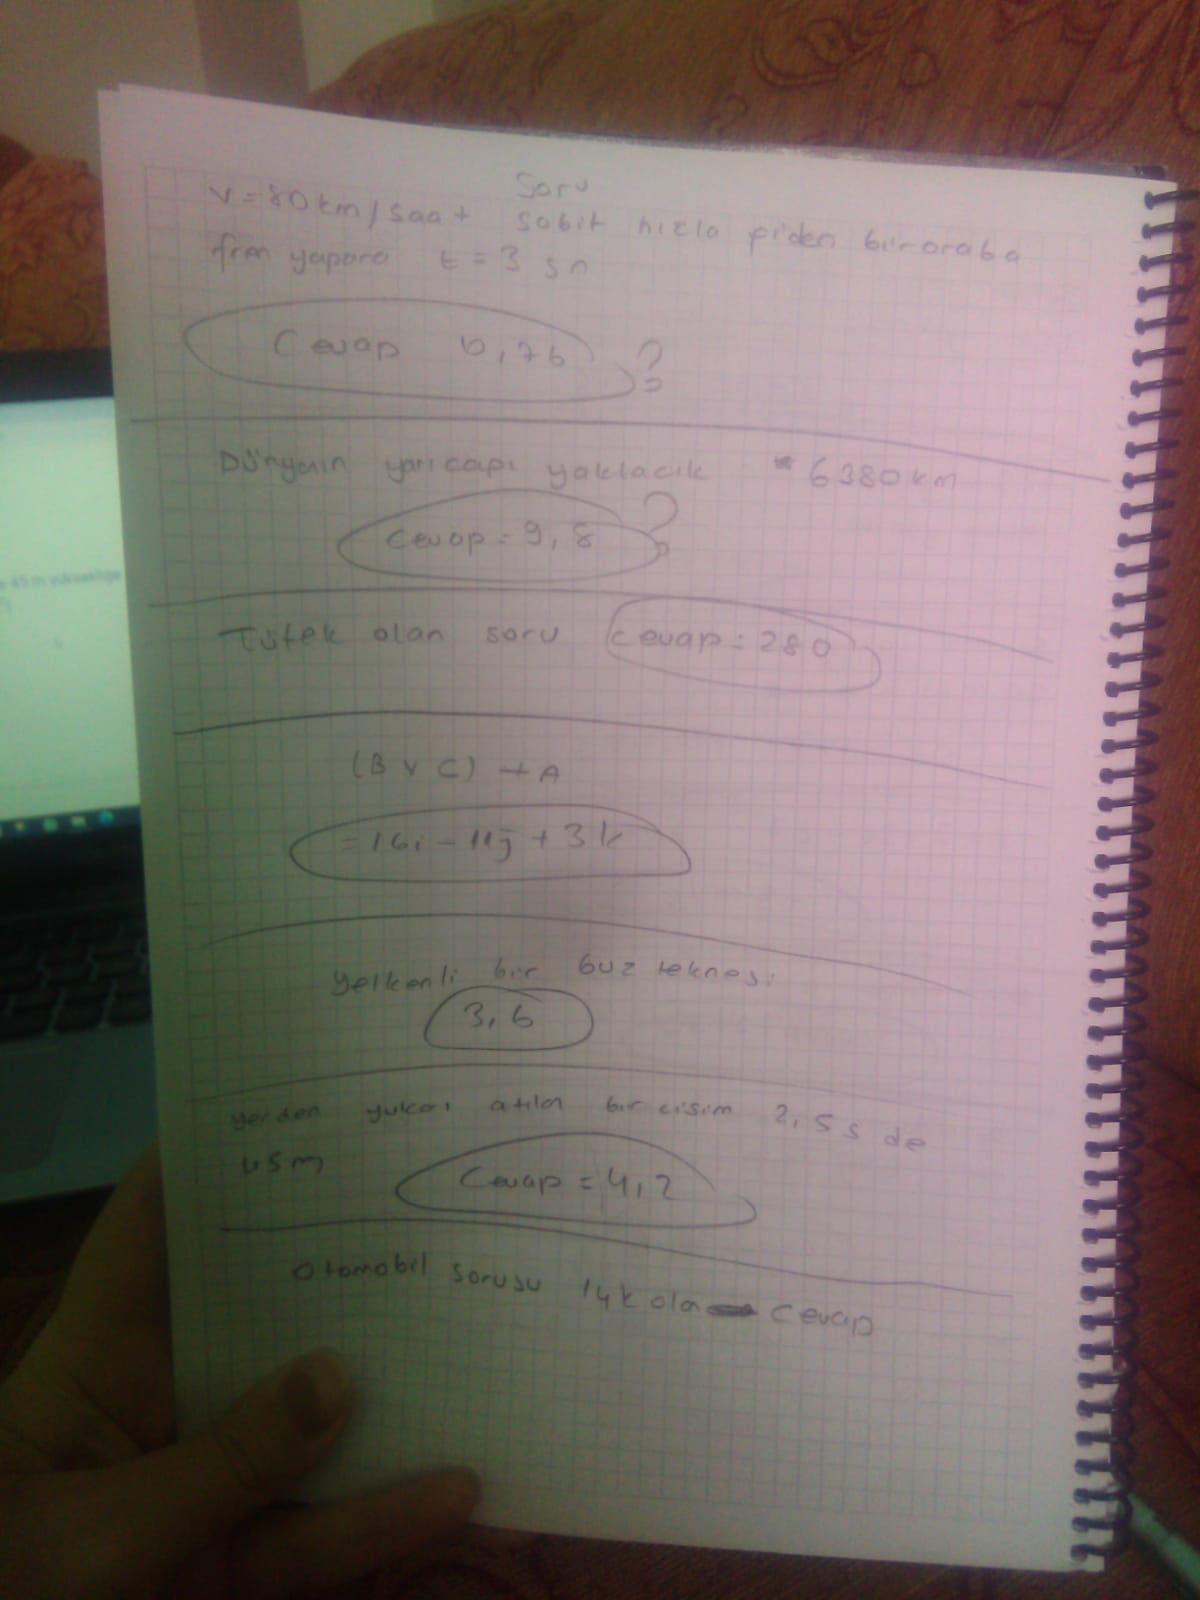 Soru
V=80km/saat sabit hızla giden bir araba
fren yapara t=3 sn
Cevap 0,76 ?
Dünyanın yarıçapı yaklacık 6380km
Cevap = 9,8 ?
Tüfek olan soru Cevap = 280
(B x C) + A
= 16i - 11j + 3k
Yelkenli bir buz teknesi
3,6
yerden yukarı atılan bir cisim 2,5s de
45m
Cevap = 4,2
Otomobil sorusu 14k olan Cevap
45 m yüksekliğe